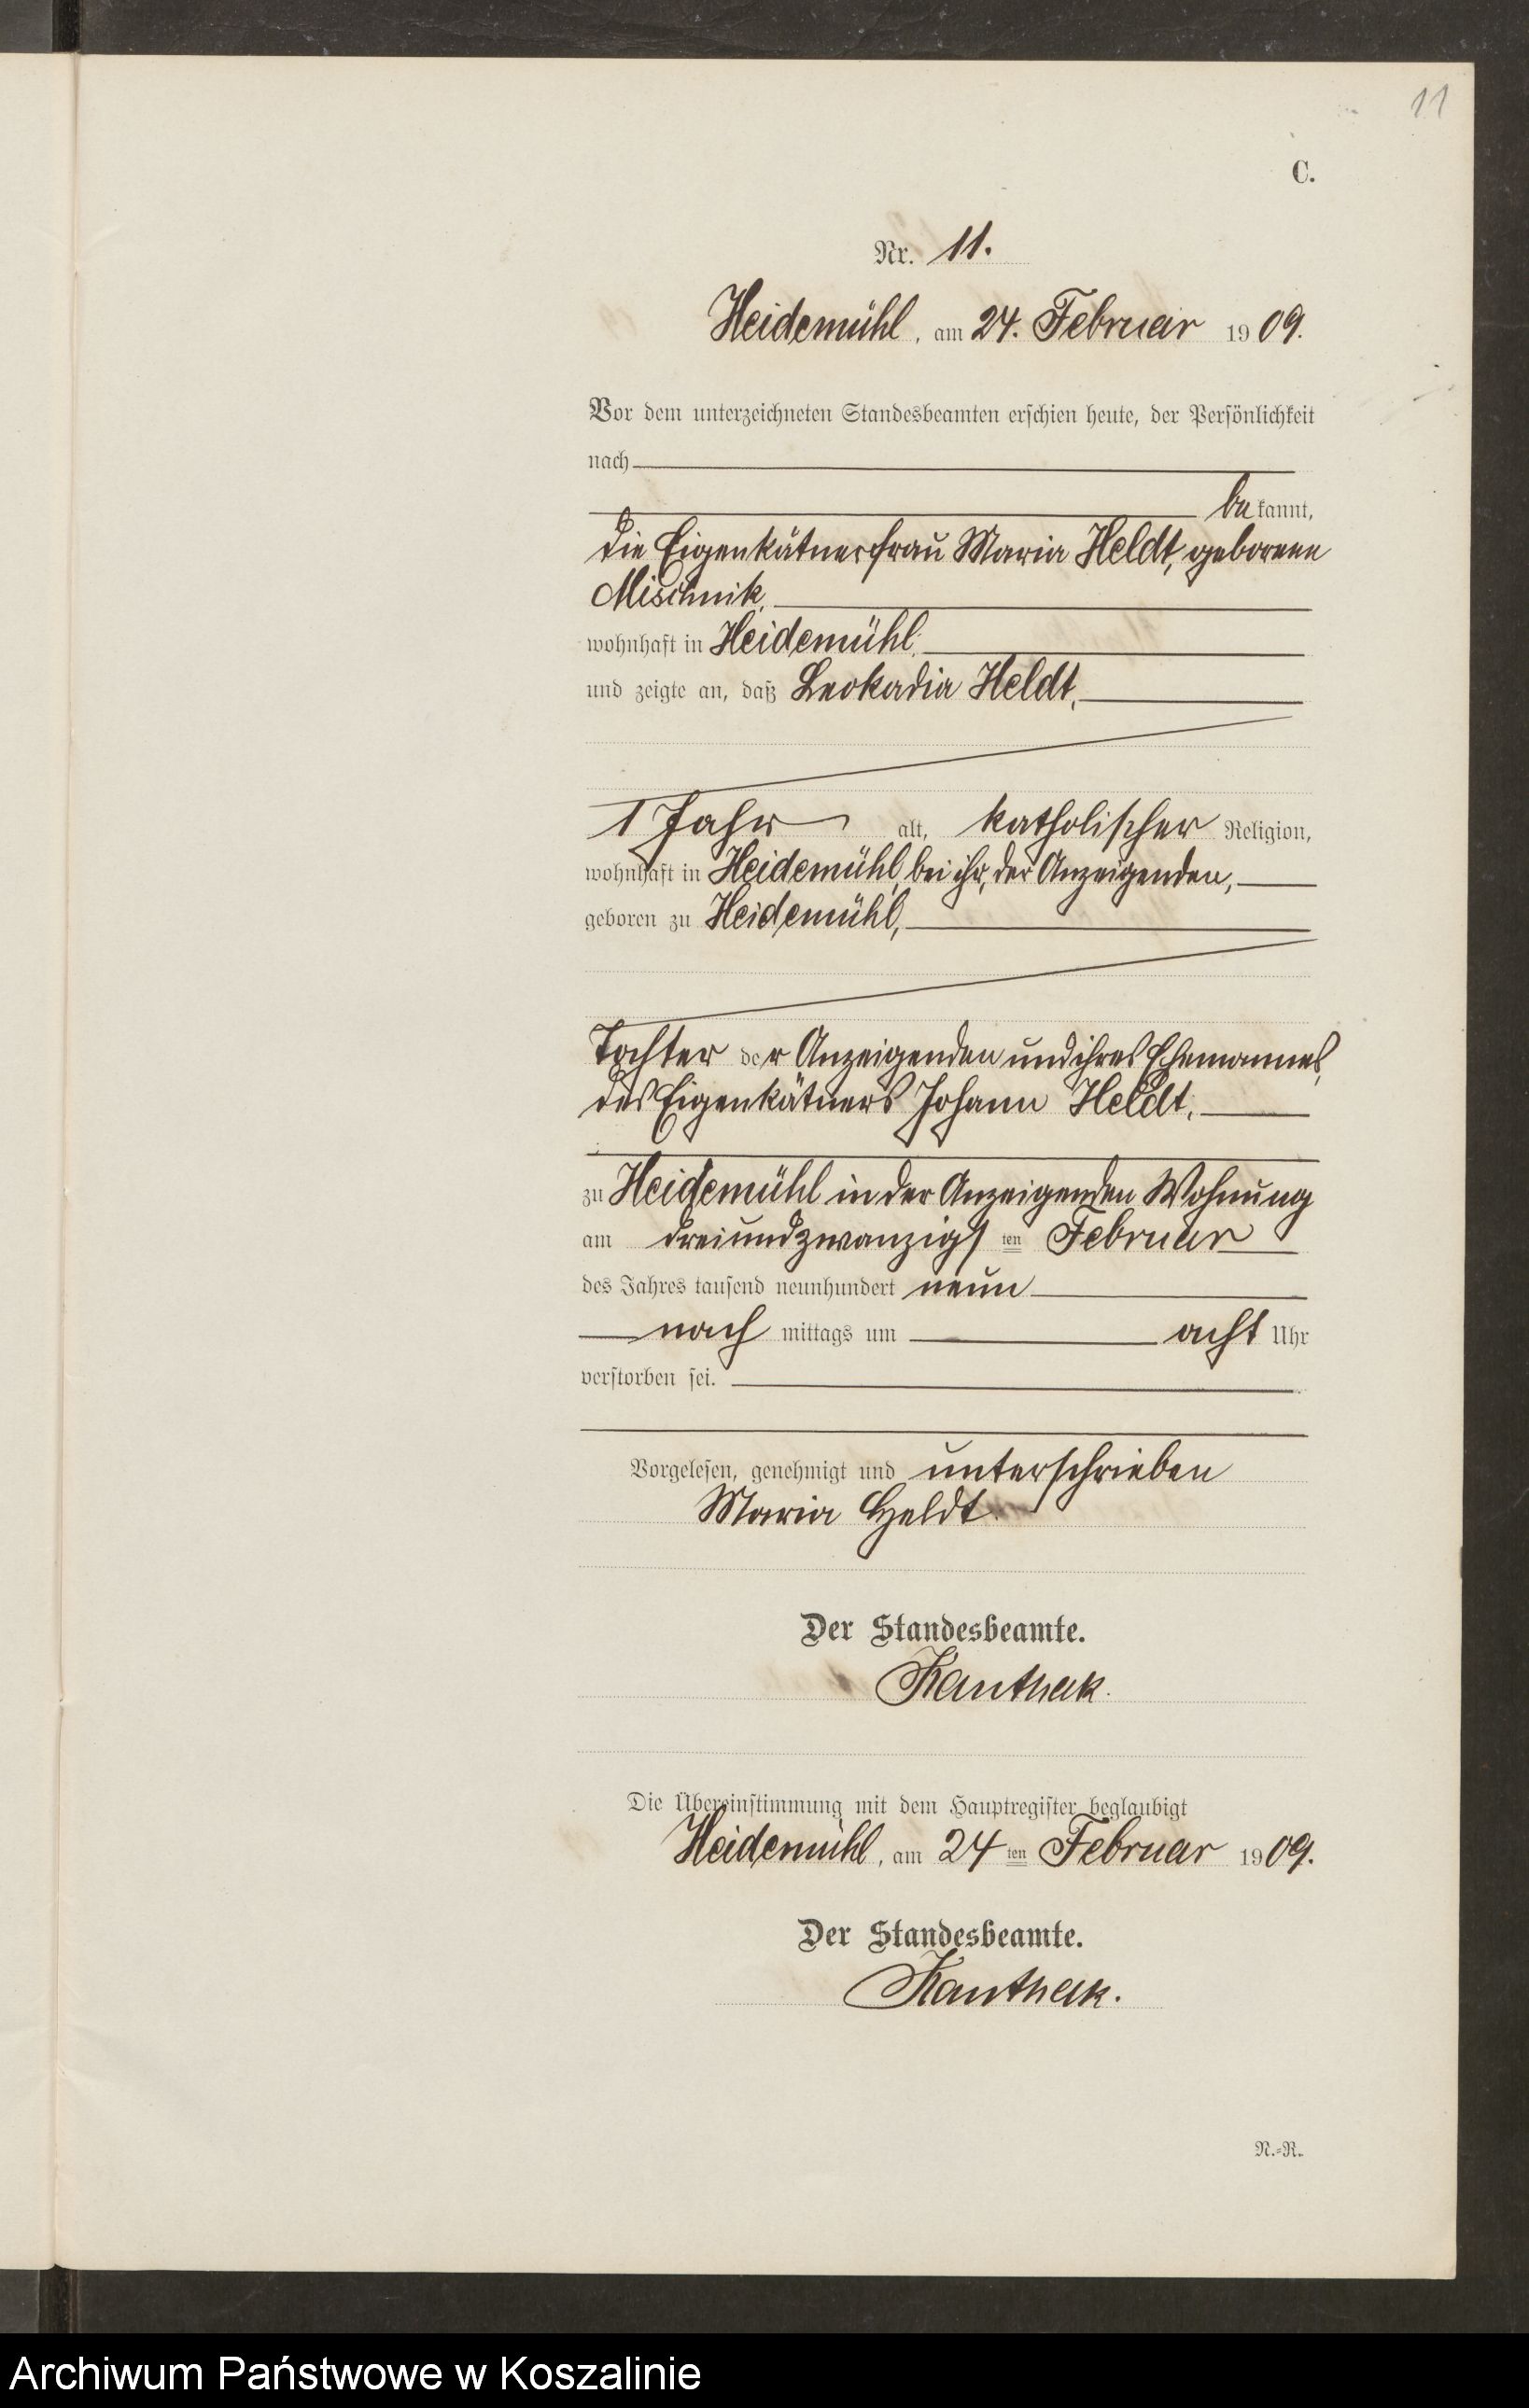 11
C.
Nr. 11.
Heidemühl, am 24. Februar 1909.
Vor dem unterzeichneten Standesbeamten erschien heute, der Persönlichkeit
nach
bekannt,
die Eigenkätnerfrau Maria Heldt, geborene
Mischnik,
wohnhaft in Heidemühl,
und zeigte an, daß Leokadia Heldt,
1 Jahr alt, katholischer Religion,
wohnhaft in Heidemühl, bei ihr, der Anzeigenden,
geboren zu Heidemühl,
Tochter der Anzeigenden und ihres Ehemannes,
des Eigenkätners Johann Heldt,
zu Heidemühl in der Anzeigenden Wohnung
am dreiundzwanzigsten Februar
des Jahres tausend neunhundert neun
nachmittags um acht Uhr
verstorben sei.
Vorgelesen, genehmigt und unterschrieben
Maria Heldt
Der Standesbeamte.
Kanthak.
Die Übereinstimmung mit dem Hauptregister beglaubigt
Heidemühl, am 24ten Februar 1909.
Der Standesbeamte.
Kanthak.
N.-R.
Archiwum Państwowe w Koszalinie